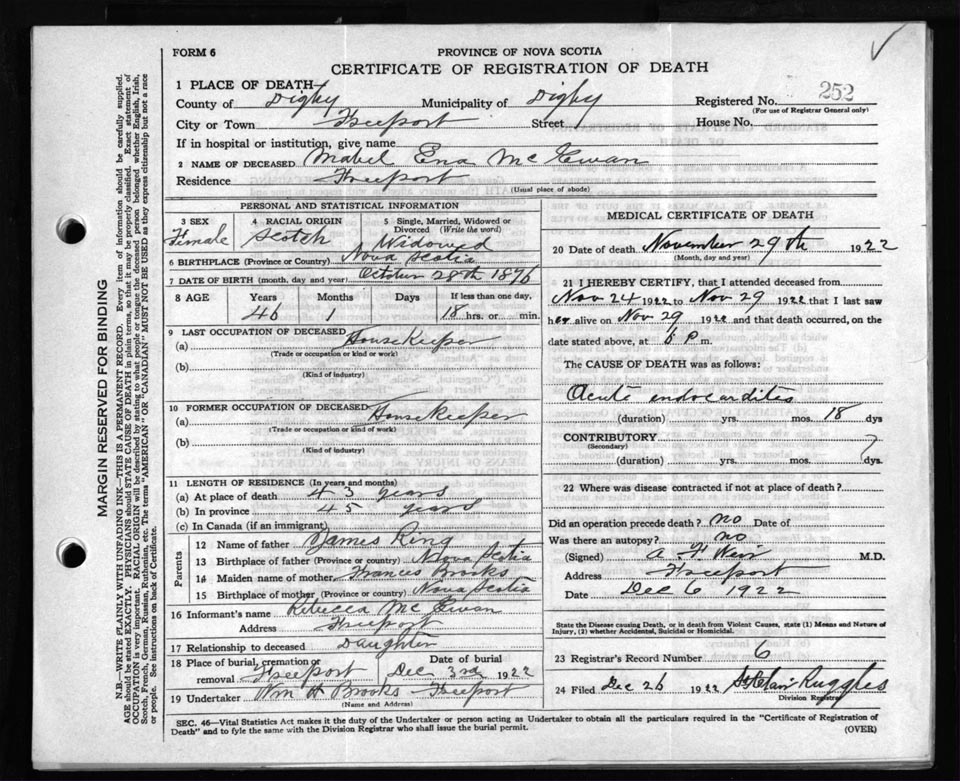 FORM 6
PROVINCE OF NOVA SCOTIA
CERTIFICATE OF REGISTRATION OF DEATH
1 PLACE OF DEATH
County of Digby Municipality of Digby Registered No. 252
(For use of Registrar General only)
City or Town Freeport Street House No.
If in hospital or institution, give name
2 NAME OF DECEASED Mabel Ena McEwan
Residence Freeport
(Usual place of abode)
PERSONAL AND STATISTICAL INFORMATION
3 SEX Female
4 RACIAL ORIGIN Scotch
5 Single, Married, Widowed or Divorced (Write the word) Widowed
6 BIRTHPLACE (Province or Country) Nova Scotia
7 DATE OF BIRTH (month, day and year) October 28th 1876
8 AGE Years Months Days If less than one day,
46 1 18 hrs. or min.
9 LAST OCCUPATION OF DECEASED
(a) HouseKeeper
(Trade or occupation or kind of work)
(b)
(Kind of industry)
10 FORMER OCCUPATION OF DECEASED
(a) HouseKeeper
(Trade or occupation or kind of work)
(b)
(Kind of industry)
11 LENGTH OF RESIDENCE (In years and months)
(a) At place of death 43 years
(b) In province 45 years
(c) In Canada (if an immigrant)
Parents
12 Name of father James Ring
13 Birthplace of father (Province or country) Nova Scotia
14 Maiden name of mother Frances Brooks
15 Birthplace of mother (Province or country) Nova Scotia
16 Informant's name Rebecca McEwan
Address Freeport
17 Relationship to deceased Daughter
18 Place of burial, cremation or removal Freeport Date of burial Dec 3rd 1922
19 Undertaker Wm H Brooks Freeport
(Name and Address)
MEDICAL CERTIFICATE OF DEATH
20 Date of death November 29th 1922
(Month, day and year)
21 I HEREBY CERTIFY, that I attended deceased from
Nov 24 1922 to Nov 29 1922 that I last saw
her alive on Nov 29 1922 and that death occurred, on the
date stated above, at P m.
The CAUSE OF DEATH was as follows:
Acute endocarditis
(duration) yrs. mos. 18 dys
CONTRIBUTORY
(Secondary)
(duration) yrs. mos. dys.
22 Where was disease contracted if not at place of death?
Did an operation precede death? no Date of
Was there an autopsy? no
(Signed) A F Weir M.D.
Address Freeport
Date Dec 6 1922
State the Disease causing Death, or in death from Violent Causes, state (1) Means and Nature of
Injury, (2) whether Accidental, Suicidal or Homicidal.
23 Registrar's Record Number 6
24 Filed Dec 26 1922 Ruggles
Division Registrar
SEC. 46—Vital Statistics Act makes it the duty of the Undertaker or person acting as Undertaker to obtain all the particulars required in the "Certificate of Registration of
Death" and to fyle the same with the Division Registrar who shall issue the burial permit.
(OVER)
MARGIN RESERVED FOR BINDING
N.B.—WRITE PLAINLY WITH UNFADING INK—THIS IS A PERMANENT RECORD. Every item of information should be carefully supplied.
AGE should be stated EXACTLY. PHYSICIANS should STATE CAUSE OF DEATH in plain terms, so that it may be properly classified. Exact statement of
OCCUPATION is very important. RACIAL ORIGIN will be described by stating to what people or tongue the deceased person belonged whether English, Irish,
Scotch, French, German, Russian, Ruthenian, etc. The terms "AMERICAN" OR "CANADIAN" MUST NOT BE USED as they express citizenship but not a race
or people. See instructions on back of Certificate.